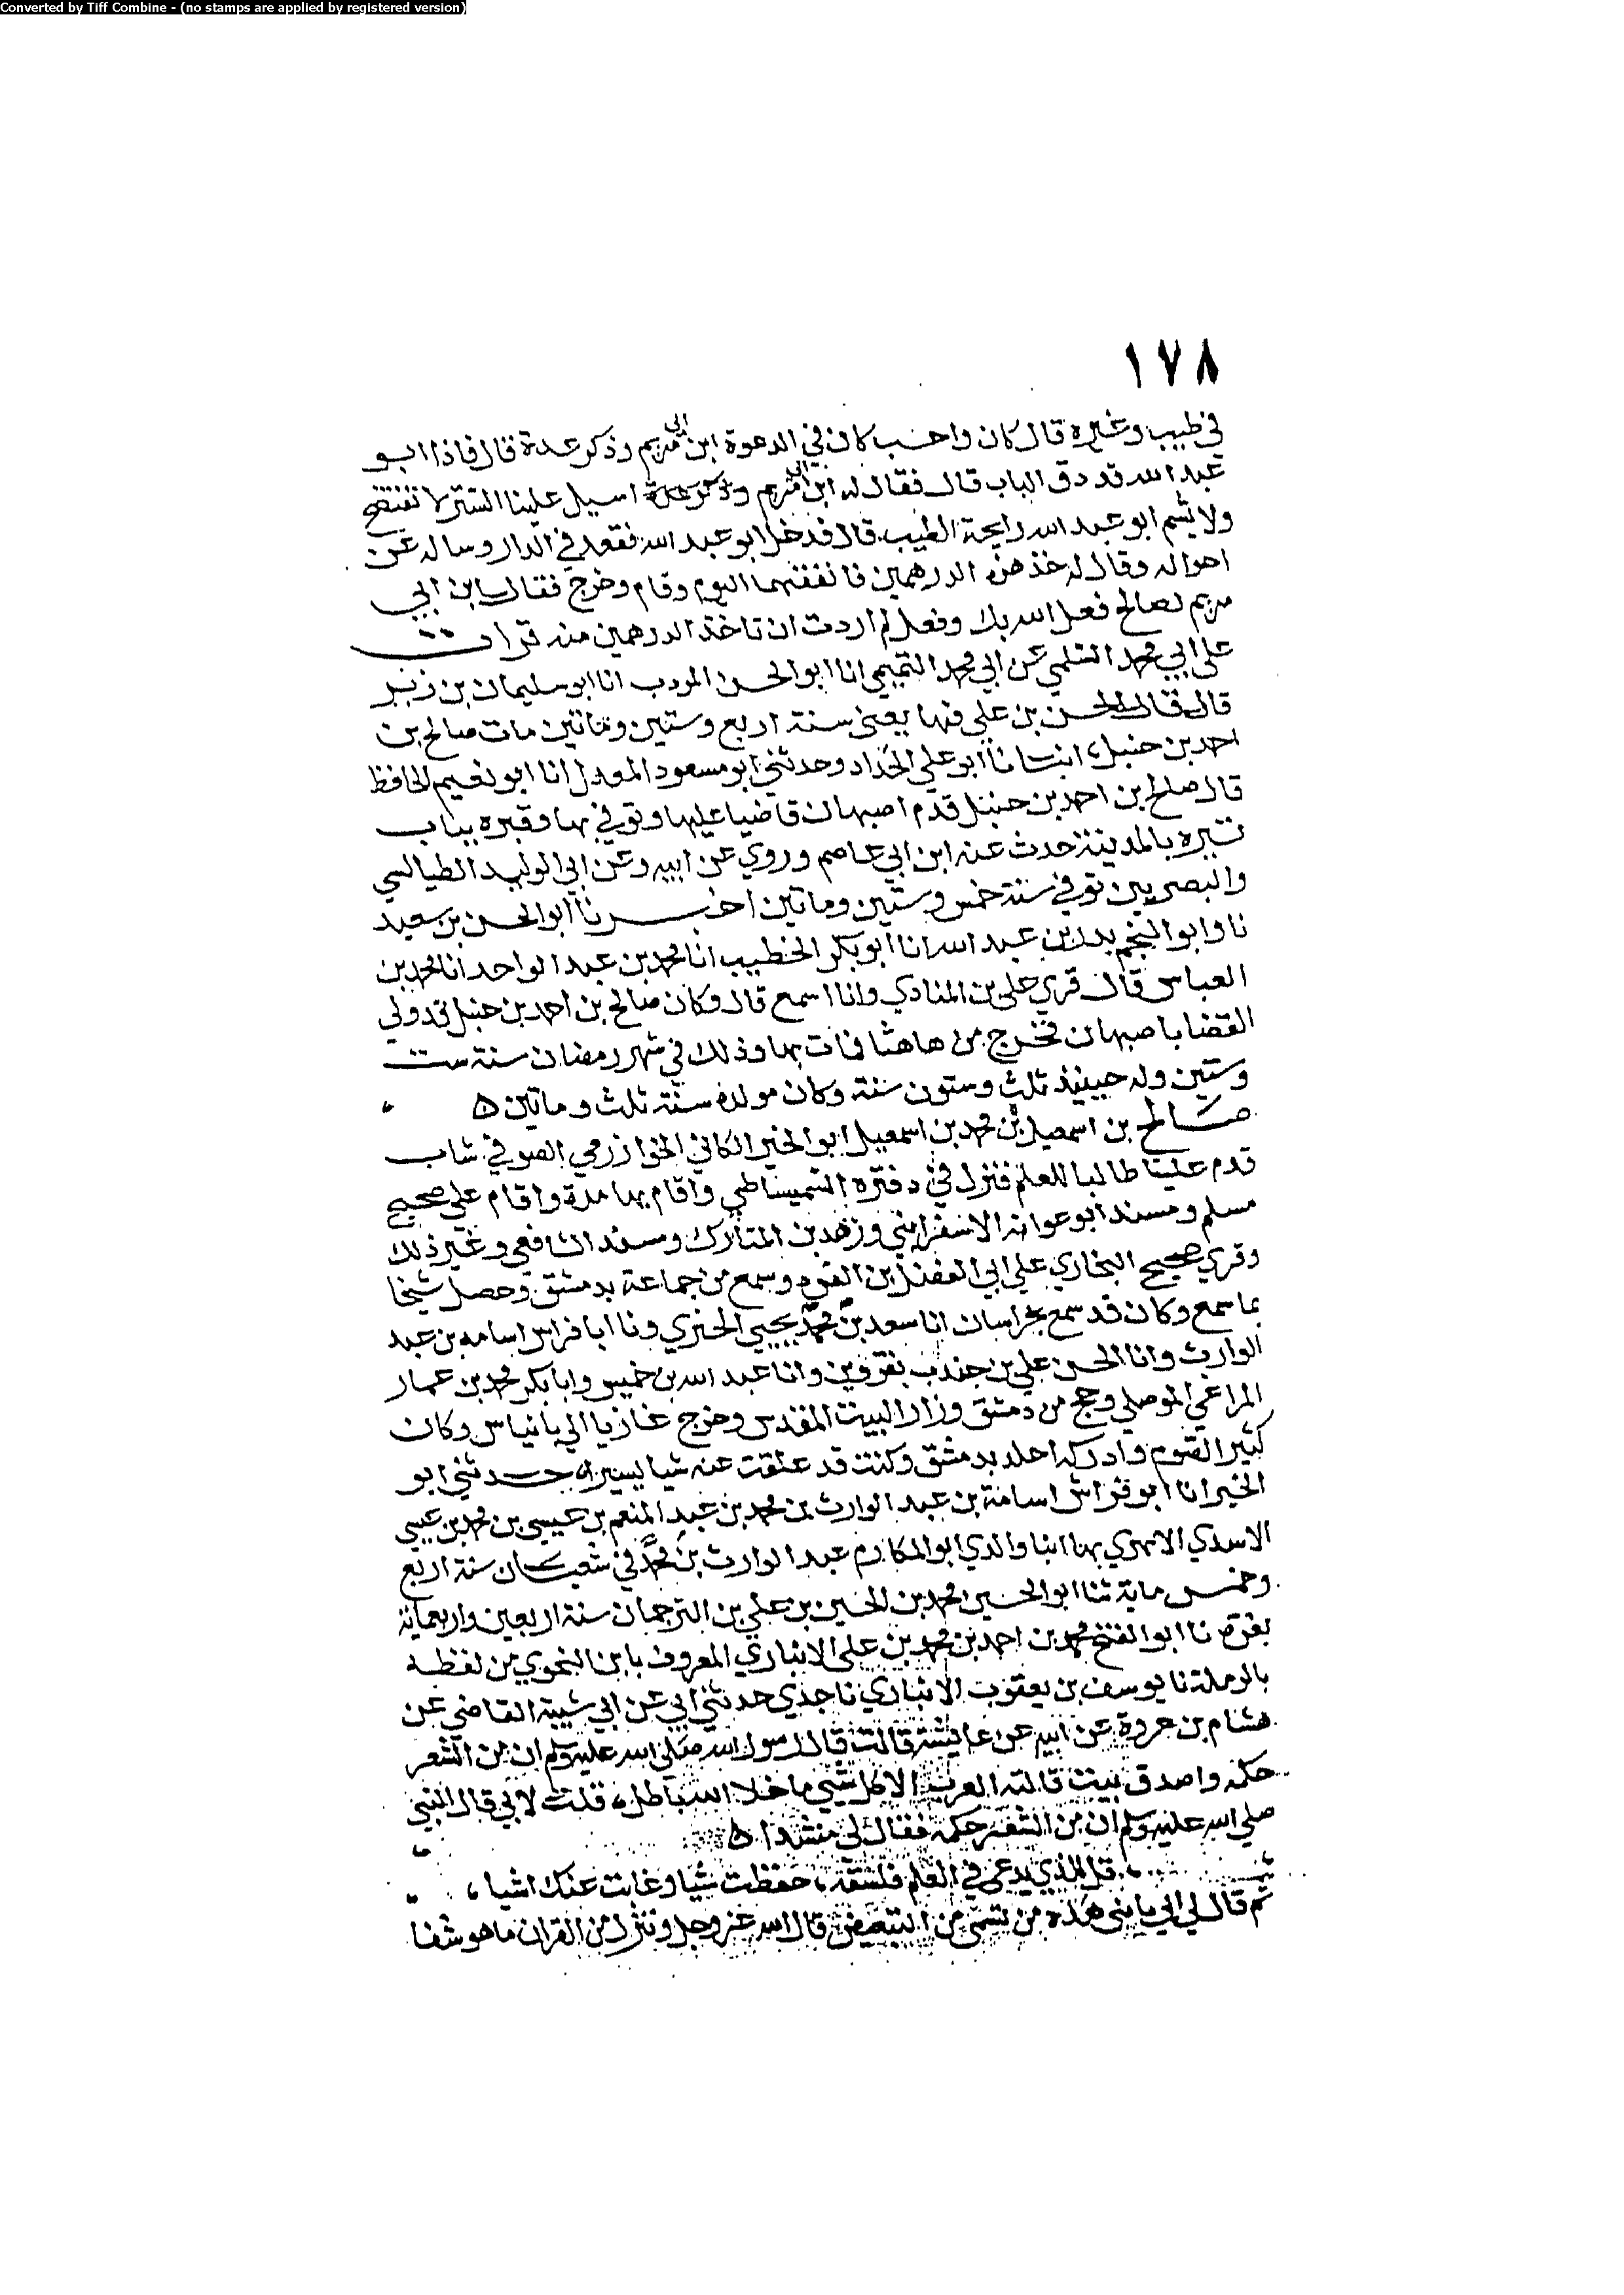 Converted by Tiff Combine - (no stamps are applied by registered version)
١٧٨
في طيب وغيره قال كان واحسب كان في الدعوة ابن ابي مريم وذكر عدة قال فاذا ابو
عبد الله قد دق الباب قال فقال له ابن ابي مريم وذكر عدة اسبل علينا الستر لا نفتضح
ولا يشم ابو عبد الله رايحة الطيب قال فدخل ابو عبد الله فقعد في الدار وساله عن
احواله وقال له خذ هذه الدرهمين فانفقهما اليوم وقام وخرج فقال ابن ابي
مريم لصالح فعل الله بك وفعل لم اردت ان تاخذ الدرهمين منه قرات
على ابي محمد السلمي عن ابي محمد التميمي انا ابو الحسن المودب انا ابو سليمان بن زبر
قال قال الحسن بن علي فيها يعني سنة اربع وستين وماتين مات صالح بن
احمد بن حنبل، انبانا ابو علي الحداد وحدثني ابو مسعود المعدل انا ابو نعيم الحافظ
قال صلح ابن احمد بن حنبل قدم اصبهان قاضيا عليها وتوفي بها وقبره بباب
تيره بالمدينة حدث عنه ابن ابي عاصم وروي عن ابيه وعن ابي الوليد الطيالسي
والبصريين توفي سنة خمس وستين وماتين اخبرنا ابو الحسن بن سعيد
نا وابو النجم بدر بن عبد الله انا ابو بكر الخطيب انا محمد بن عبد الواحد انا محمد بن
العباس قال قري على بن المنادي وانا اسمع قال وكان صالح بن احمد بن حنبل قد ولي
القضا باصبهان فخرج من هاهنا فمات بها وذلك في شهر رمضان سنة ست
وستين وله حينيذ ثلث وستون سنة وكان مولده سنة ثلث وماتين ه
صالح بن اسمعيل بن محمد بن اسمعيل ابو الخير الكاثي الخوارزمي الصوفي شاب
قدم علينا طالبا للعلم فنزل في دفتره السميساطي واقام بها مدة واقام على صحيح
مسلم ومسند ابو عوانه الاسفرايني وزهد بن المبارك ومسند الشافعي وغير ذلك
وقري صحيح البخاري علي ابي الفضل بن وسمع من جماعة بدمشق وحصل شيخا
بما سمع وكان قد سمع بخراسان انا سعد بن محمد يحيى ونا ابا فراس اسامه بن عبد
الوارث وانا الحسن علي بن جندب بقزوين وانا عبد الله بن خميس وابا بكر محمد بن عمار
المراغي الموصلي وحج من دمشق وزار البيت المقدس وخرج غازيا الى بانياس وكان
كثير الصوم وادركه اجله بدمشق وكنت قد علقت عنه شيا يسيرا، حدثني ابو
الخير انا ابو فراس اسامة بن عبد الوارث بن محمد بن عبد المنعم بن عيسى بن محمد بن عيسى
الاسدي الابهري بها انبا والدي ابو المكارم عبد الوارث بن محمد في شعبان سنة اربع
وخمس ماية ثنا ابو الحسين محمد بن الحسين بن علي بن الترجمان سنة اربعين واربعماية
بغزة نا ابو الفتح محمد بن احمد بن محمد بن علي الانباري المعروف بابن النحوي من لفظه
بالرملة نا يوسف بن يعقوب الانباري نا جدي حدثني ابي عن ابي شيبة القاضي عن
هشام بن عروة عن ابيه عن عايشة قالت قال رسول الله صلى الله عليه وسلم ان من الشعر
حكمه واصدق بيت قالته العرب الا كل شيي ما خلا الله باطل، قلت لابي قال النبي
صلى الله عليه وسلم ان من الشعر حكمه فقال لي منشدا ه
قل للذي يدعي في العلم فلسفة، حفظت شيا وغابت عنك اشيا،
ثم قال لي ابي يا بني هذه من تسمى من التبعيض قال الله عز وجل وننزل من القران ما هو شفا